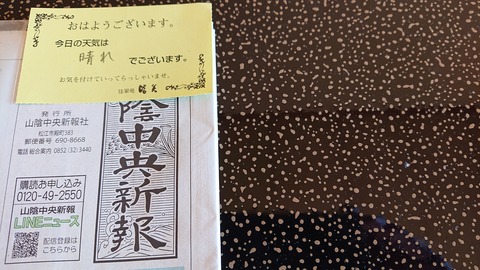 おはようございます。
今日の天気は
晴れ
でございます。
お気を付けていってらっしゃいませ。
陰中央新報
発行所
山陰中央新報社
松江市殿町383
郵便番号 690-8668
電話 総合案内 0852(32)3440
購読お申し込み
0120-49-2550
山陰中央新報
LINEニュース
配信登録は
こちらから